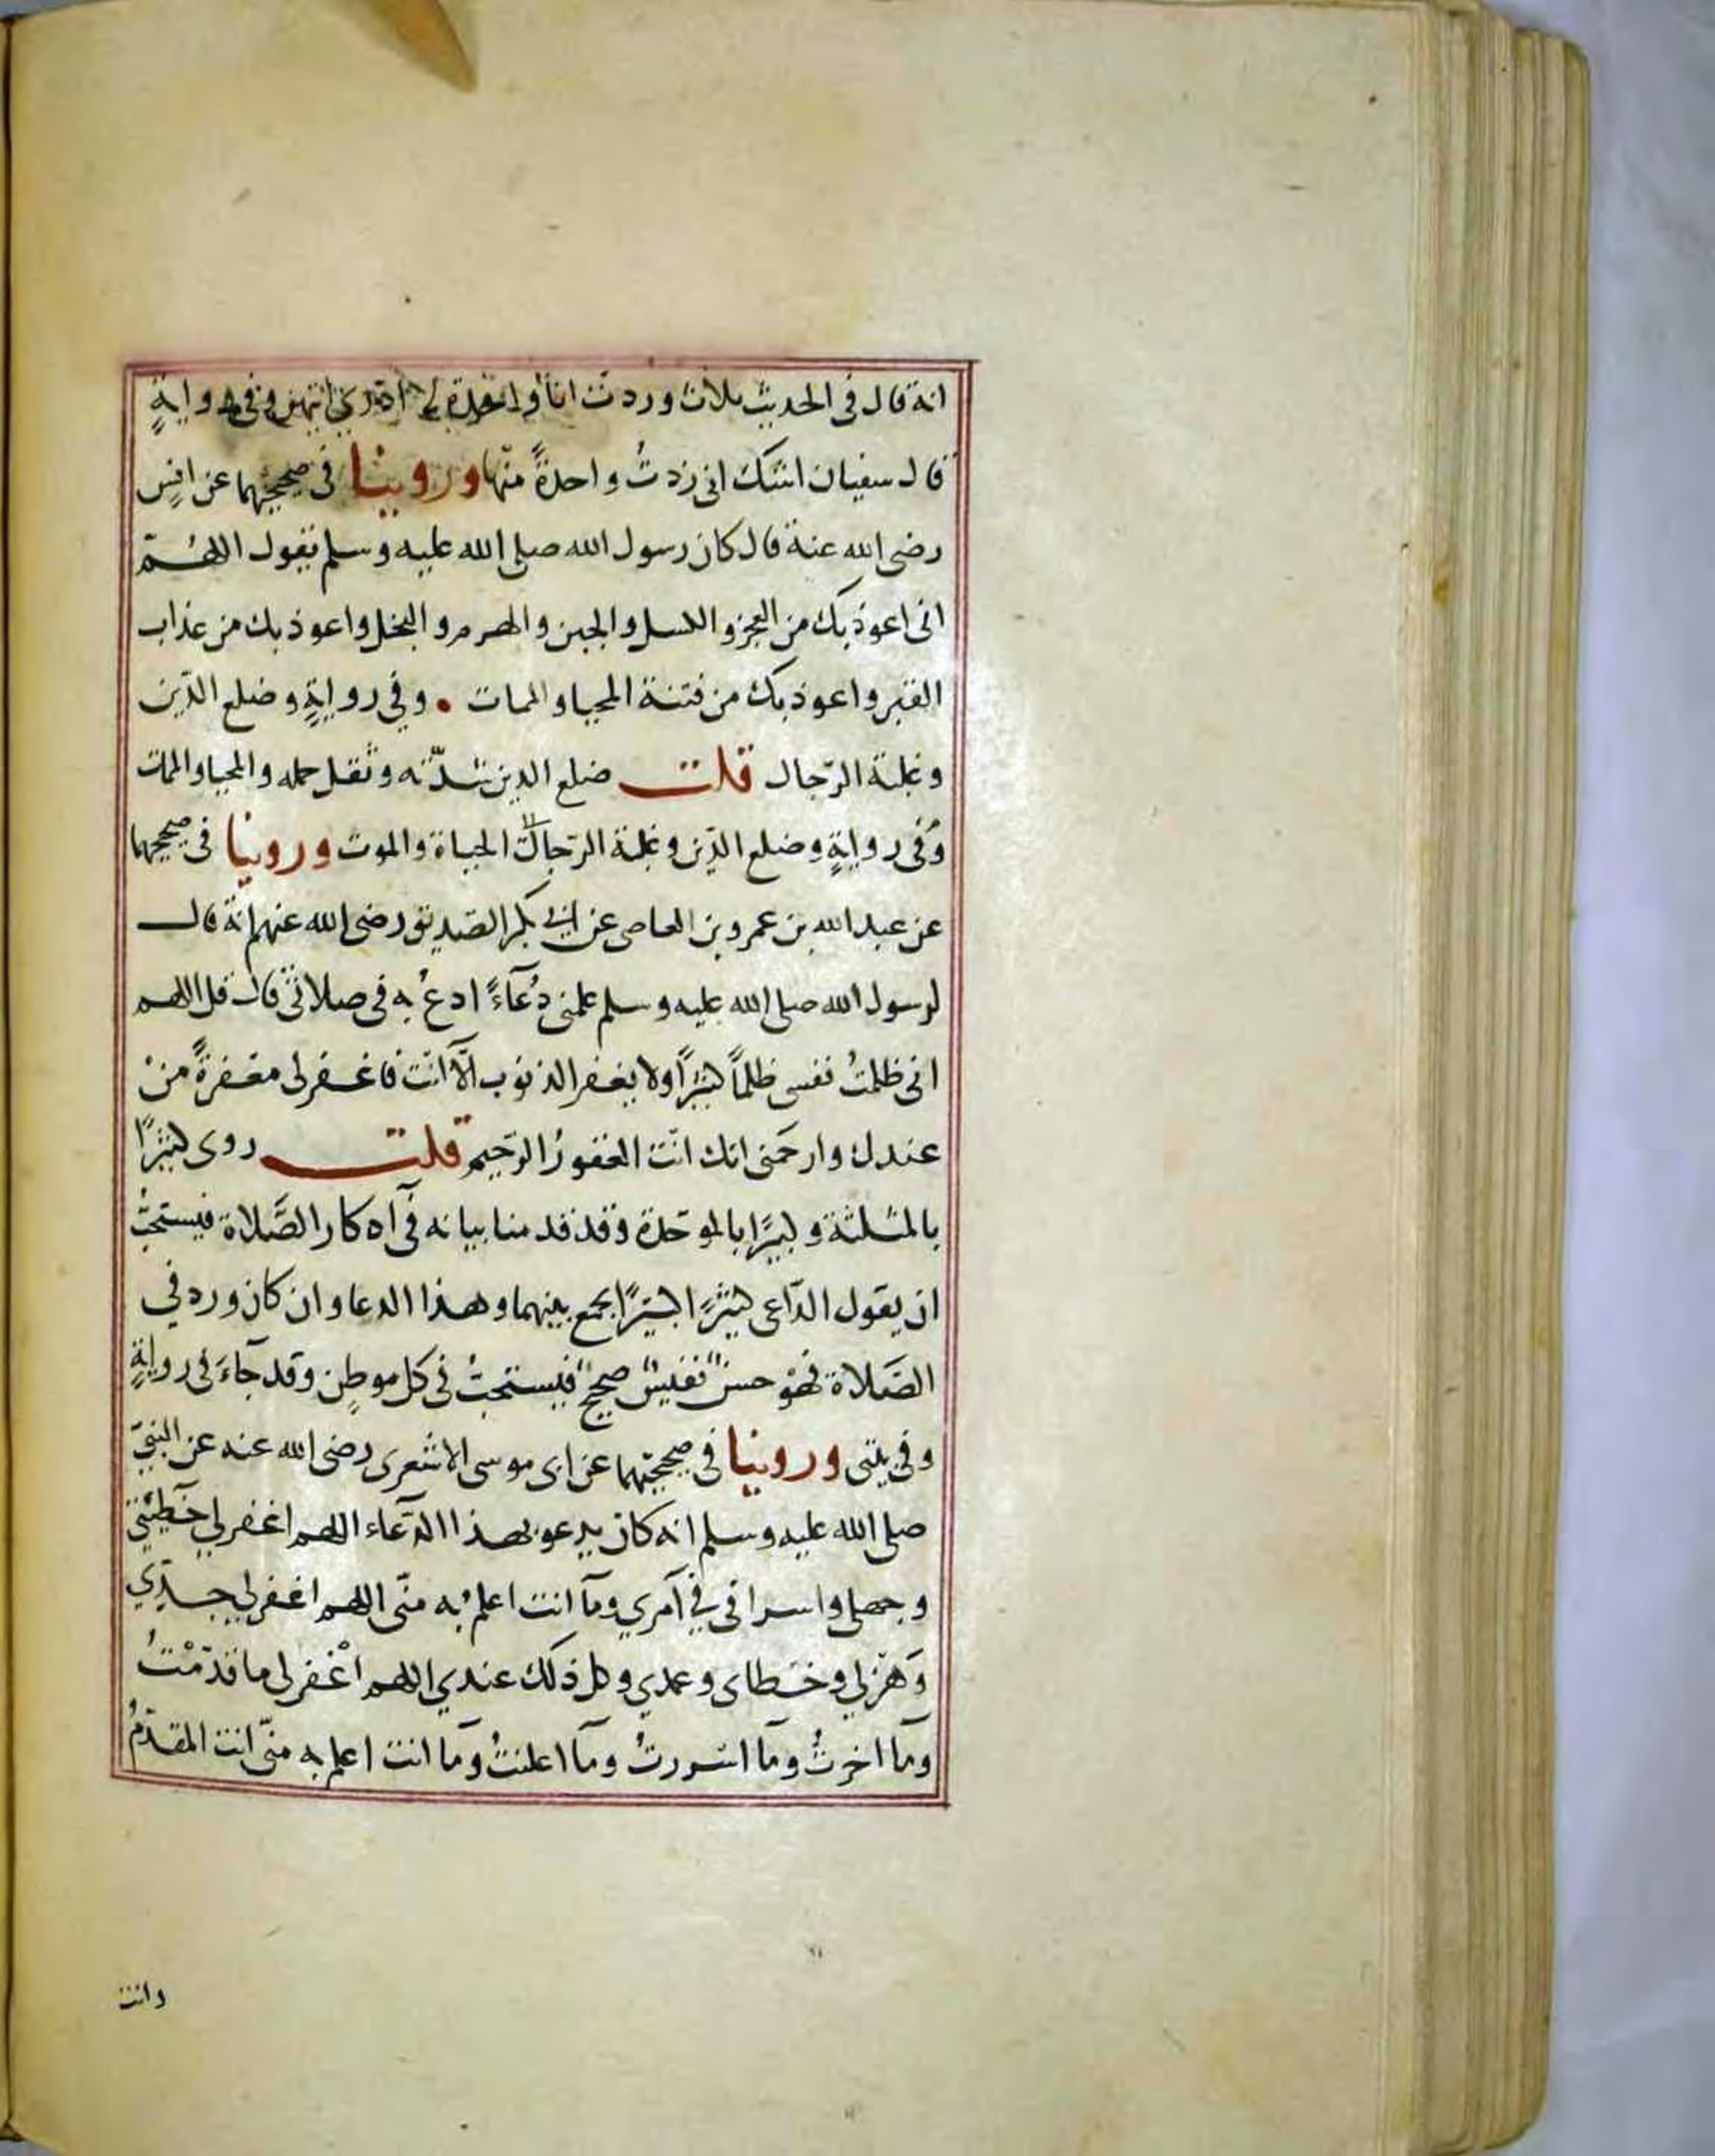 انه قال فى الحديث ثلاث وردت انا واحدة لا ادرى ايتهن وفى رواية
قال سفيان اشك انى زدتُ واحدةً منها وروينا فى صحيحيهما عن انسٍ
رضى الله عنه قال كان رسول الله صلى الله عليه وسلم يقول اللهم
انى اعوذ بك من العجز والكسل والجبن والهرم والبخل واعوذ بك من عذاب
القبر واعوذ بك من فتنة المحيا والممات . وفي رواية وضلع الدّين
وغلبة الرّجال قلت ضلع الدين شدّته وثقل حمله والمحيا والممات
وفى رواية وضلع الدّين وغلبة الرّجال الحياة والموت وروينا فى صحيحيهما
عن عبد الله بن عمرو بن العاص عن ابى بكر الصّديق رضى الله عنهم انه قال
لرسول الله صلى الله عليه وسلم علمنى دُعآءً ادعُ به فى صلاتى قال قل اللهم
انى ظلمتُ نفسى ظلماً كثيرًا ولا يغفر الذنوب الّآ انت فاغفر لى مغفرةً منْ
عندك وارحمنى انك انت الغفورُ الرّحيم قلت روى كثيرًا
بالمثلثة وكبيرًا بالموحّدة وقد قدمنا بيانه فى اذكار الصَّلاة فيستحبُّ
ان يقول الدّاعى كثيرًا كبيرًا يجمع بينهما وهذا الدعا وان كان ورد في
الصَّلاة فهو حسنٌ نفيسٌ صحيحٌ فيستحبُّ فى كل موطنٍ وقد جآءَ فى رواية
وفى بيتى وروينا فى صحيحيهما عن ابى موسى الاشعرى رضى الله عنه عن النبىّ
صلى الله عليه وسلم انه كان يدعو بهذا الدّعاء اللهم اغفر لي خطيئتى
وجهلى واسرافى في آمري ومآ انت اعلم به منّى اللهم اغفر لي جدّي
وَهزلي وخطاى وعمدي وكل ذلك عندي اللهم اغْفر لى ما قدّمْتُ
ومآ اخرتُ ومآ اسررتُ ومآ اعلنتُ ومآ انت اعلم به منّى انت المقدّمُ
وانت